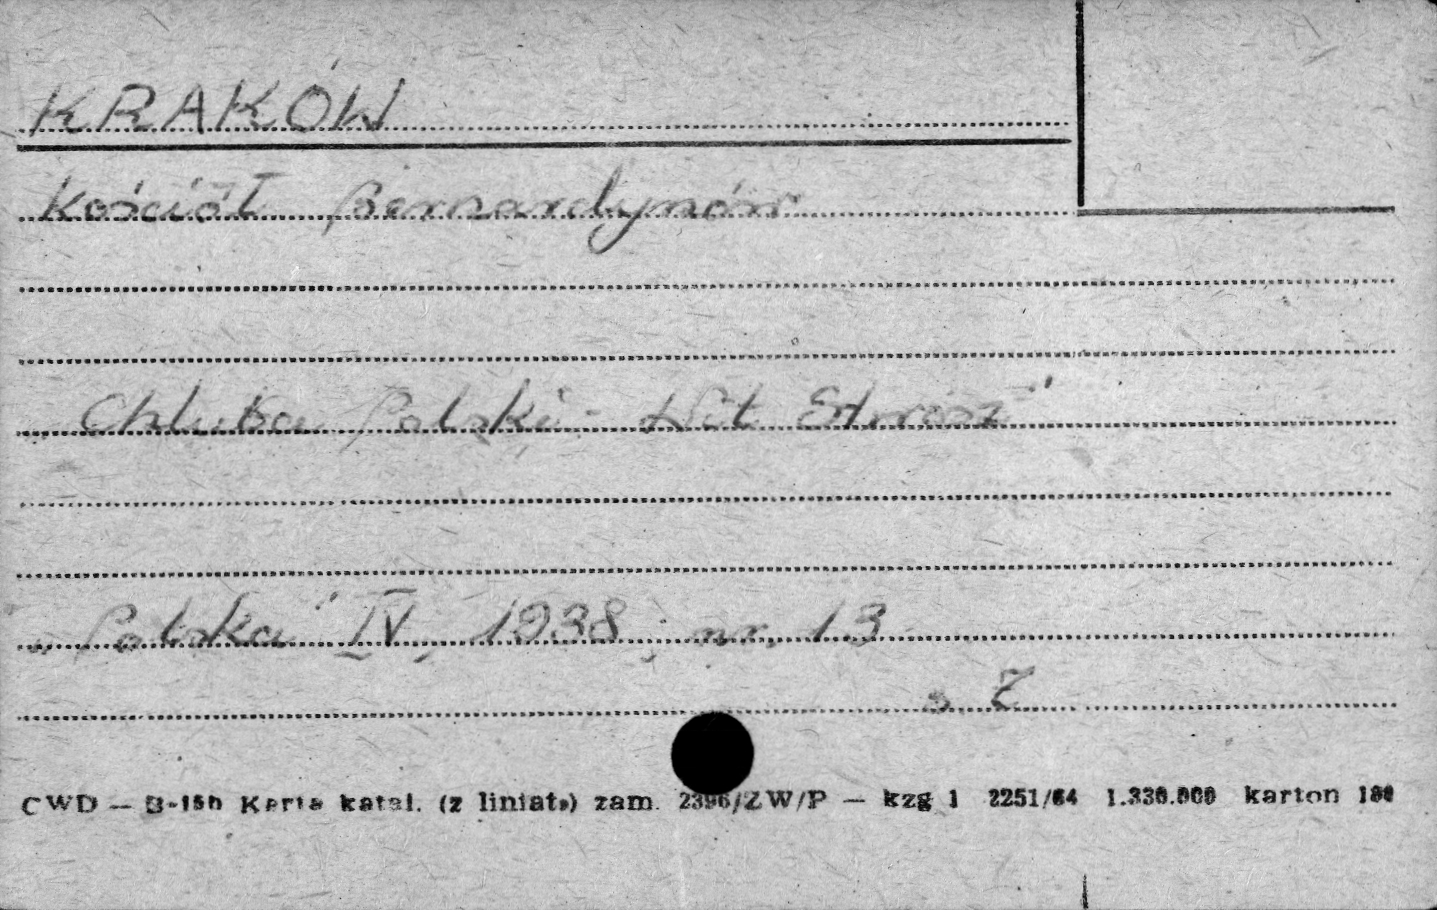 KRAKÓW
Kościół Bernardynów
„Chluba Polski - Wit Stwosz”
„Polska” IV, 1938, nr. 13
s. 7
CWD — B-15b Karta katal. (z liniat.) zam. 2396/ZW/P — kzg 1 2251/64 1.330.000 karton 180